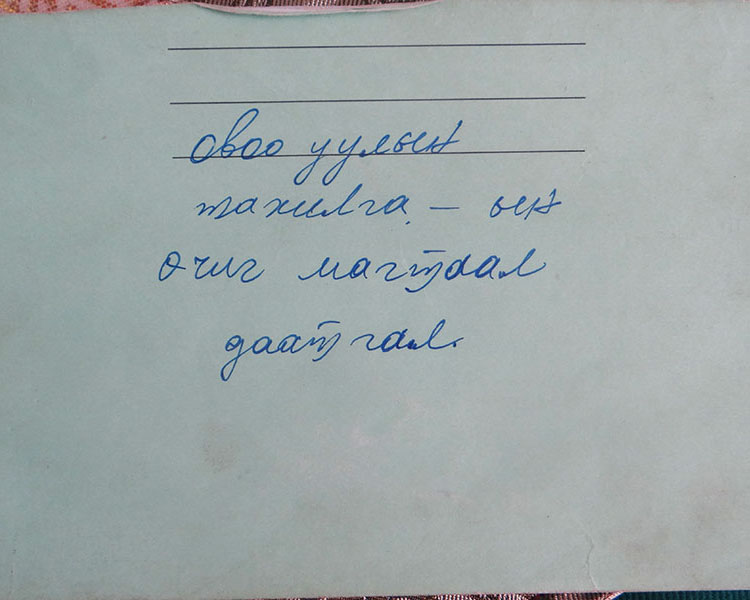 овоо уулын
тахилга - ын
өчиг магтаал
даатгал.